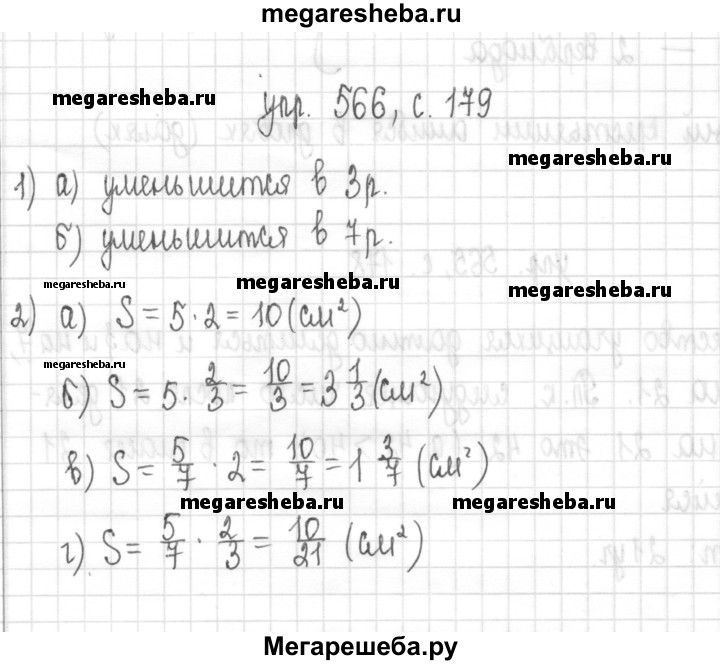 megaresheba.ru
megaresheba.ru
упр. 566, с. 179
megaresheba.ru
1) а) уменьшится в 3 р.
б) уменьшится в 7 р.
megaresheba.ru
megaresheba.ru
megaresheba.ru
2) а) S = 5 · 2 = 10 (см²)
megaresheba.ru
б) S = 5 · 2/3 = 10/3 = 3 1/3 (см²)
в) S = 5/7 · 2 = 10/7 = 1 3/7 (см²)
megaresheba.ru
megaresheba.ru
г) S = 5/7 · 2/3 = 10/21 (см²)
Мегарешеба.ру